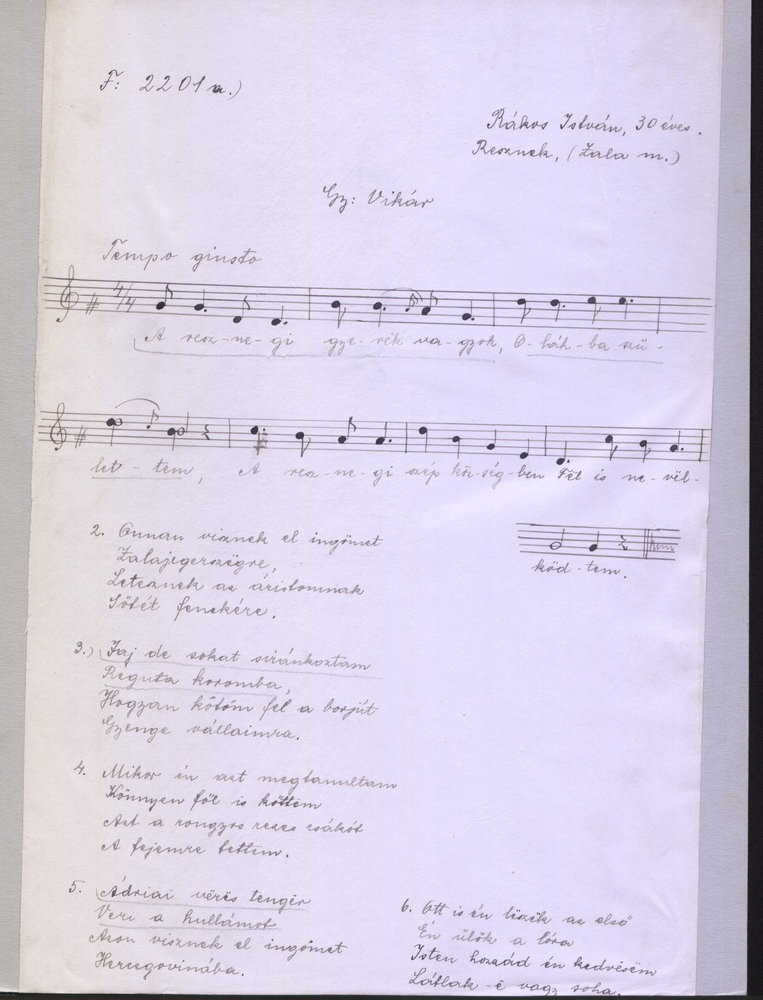 F: 2201 a.)
Rákos István, 30 éves.
Resznek, (Zala m.)
Gy: Vikár
Tempo giusto
4/4
A resz-ne-gi gye-rëk va-gyok, O-láh-ba szü-
let-tem, A resz-ne-gi szép köz-ség-ben Fël is ne-vël-
köd-tem.
2. Onnan visznek el ingömet
Zalajegerszëgre,
Letesznek az áristomnak
Sötét fenekére.
3.) Jaj de sokat siránkoztam
Reguta koromba,
Hogyan kötöm fel a borjút
Gyenge vállaimra.
4. Mikor én azt megtanultam
Könnyen föl is köttem
Azt a rongyos rezes csákót
A fejemre tettem.
5. Ádriai vërës tengër
Veri a hullámot
Azon visznek el ingömet
Hercegovinába.
6. Ott is én lëszëk az első
Én ülök a lóra
Isten hozzád én kedvesëm
Látlak-ë vagy soha.